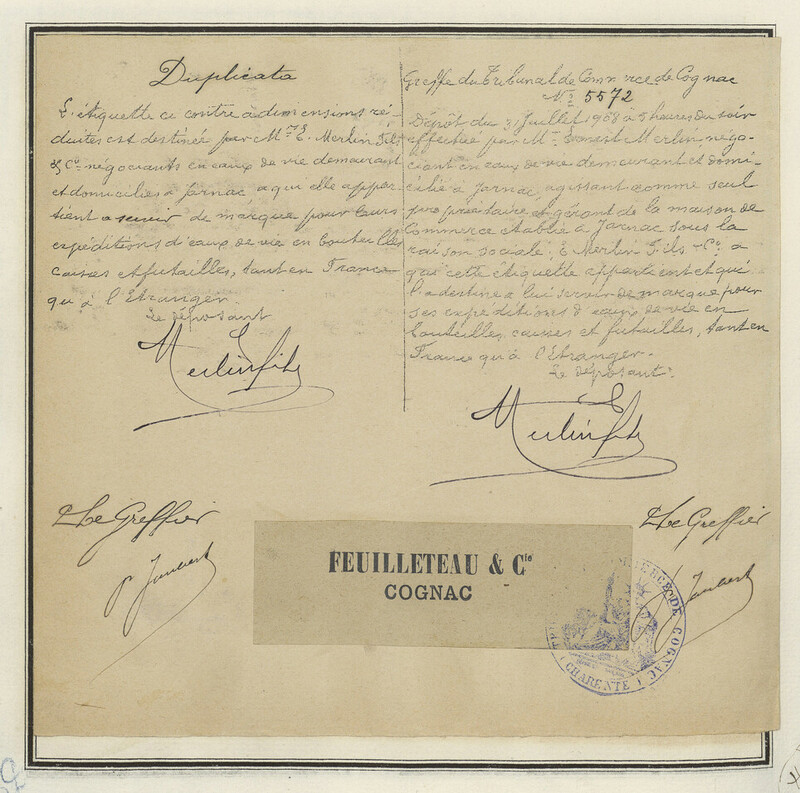 Duplicata
L'étiquette ci contre à dimensions ré-
duites est destinée par Mrs E. Merlin Fils
& Co négociants en eaux de vie demeurant
et domiciliés à Jarnac, a qui elle appar-
tient a servir de marque pour leurs
expéditions d'eaux de vie en bouteilles
caisses et futailles, tant en France
qu'à l'étranger.
Le déposant
E Merlin fils
Greffe du Tribunal de Commerce de Cognac
No 5572
Dépôt du 31 Juillet 1908 à 5 heures du soir
effectué par Mr Ernest Merlin, négo-
ciant en eaux de vie demeurant et domi-
cilié à Jarnac, agissant comme seul
propriétaire et gérant de la maison de
Commerce établie à Jarnac sous la
raison sociale, E Merlin Fils & Co a
qui cette étiquette appartient et qui
l'a destine a lui servir de marque pour
ses expéditions d'eaux de vie en
bouteilles, caisses et futailles, tant en
France qu'à l'étranger.
Le déposant
E Merlin fils
Le Greffier
Le Greffier
FEUILLETEAU & Cie
COGNAC
COMMERCE DE COGNAC
CHARENTE